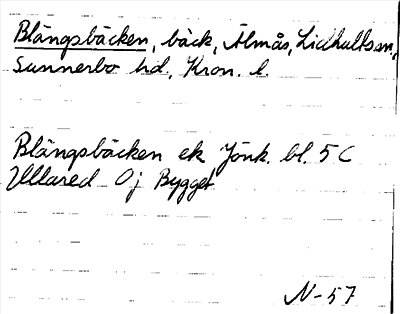 Blängsbäcken, bäck, Älmås, Lidhults sn,
Sunnerbo hd, Kron. l.
Blängsbäcken ek Jönk. bl. 5 C
Ullared Oj Bygget
N-57